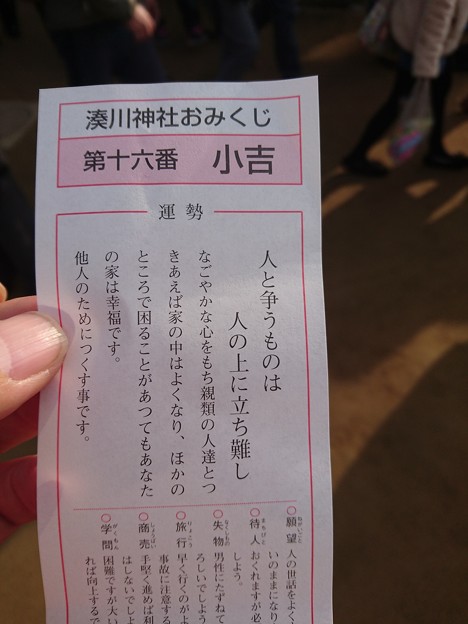 湊川神社おみくじ
第十六番 小吉
運勢
人と争うものは
人の上に立ち難し
なごやかな心をもち親類の人達とつ
きあえば家の中はよくなり、ほかの
ところで困ることがあつてもあなた
の家は幸福です。
他人のためにつくす事です。
○願望 ねがいごと 人の世話をよく
いのままになり
○待人 まちびと おくれますが必
しよう。
○失物 うしもの 男性にたずねて
ろしいでしよう
○旅行 りょこう 早く行くのがよ
事故に注意する
○商売 しょうばい 手堅く進めば利
はしないでしよ
○学問 がくもん 困難ですが大い
れば向上するで